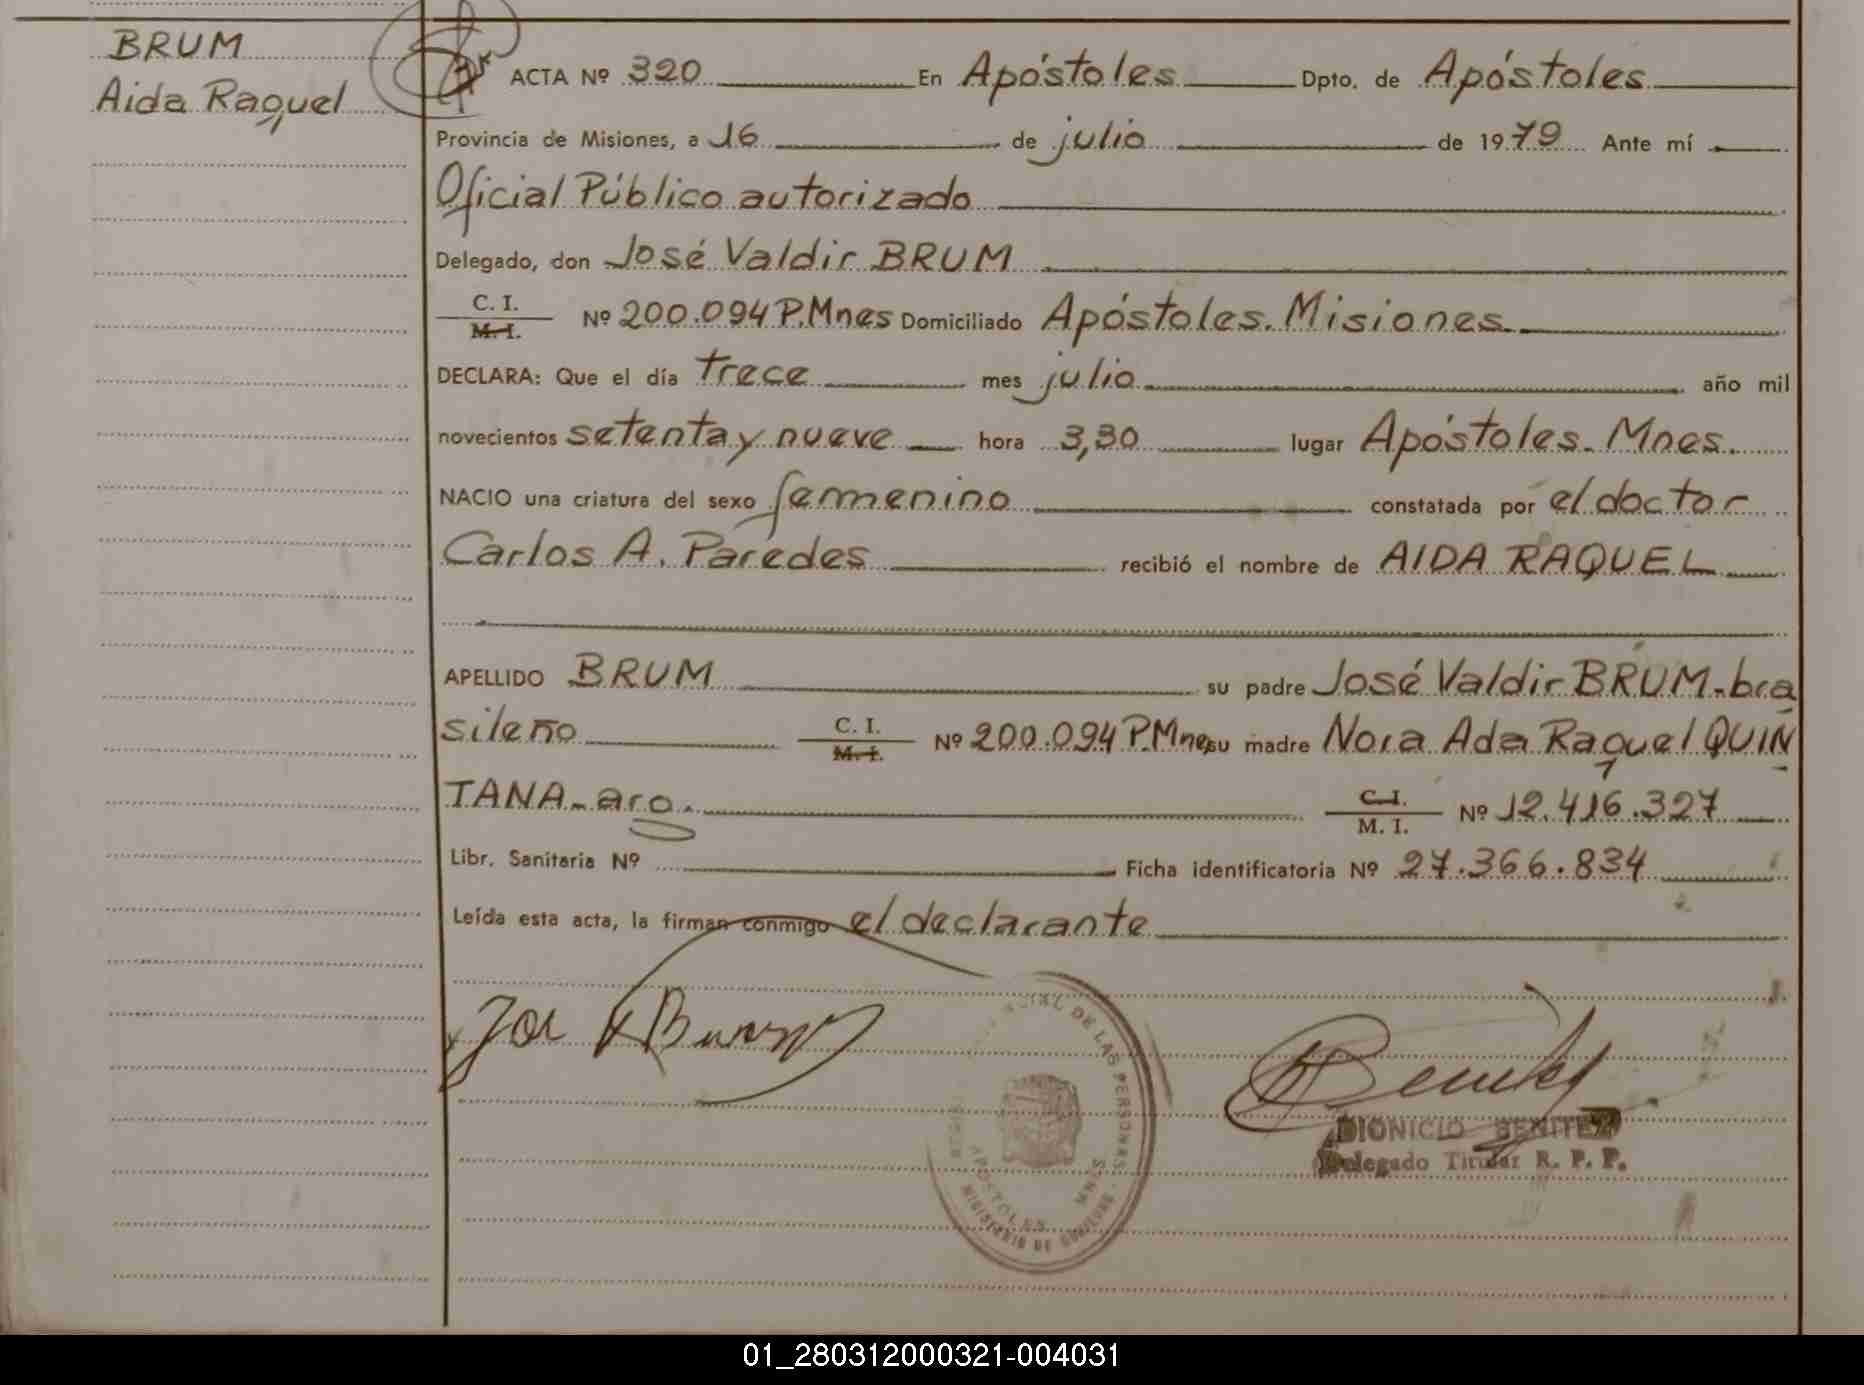 BRUM
Aida Raquel
ACTA Nº 320 En Apóstoles Dpto. de Apóstoles
Provincia de Misiones, a 16 de julio de 1979 Ante mí
Oficial Público autorizado
Delegado, don José Valdir BRUM
C. I.
M. I. Nº 200.094 P.Mnes Domiciliado Apóstoles. Misiones
DECLARA: Que el día trece mes julio año mil
novecientos setenta y nueve hora 3,30 lugar Apóstoles. Mnes.
NACIO una criatura del sexo femenino constatada por el doctor
Carlos A. Paredes recibió el nombre de AIDA RAQUEL
APELLIDO BRUM su padre José Valdir BRUM-bra
sileño C. I.
M. I. Nº 200.094 P.Mnes su madre Nora Ada Raquel QUIN
TANA-arg. C. I.
M. I. Nº 12.416.327
Libr. Sanitaria Nº Ficha identificatoria Nº 27.366.834
Leída esta acta, la firman conmigo el declarante
DE LAS PERSONAS
APOSTOLES MNES
MINISTERIO DE GOBIERNO
DIONICIO BENITEZ
Delegado Titular R. P. P.
01_280312000321-004031